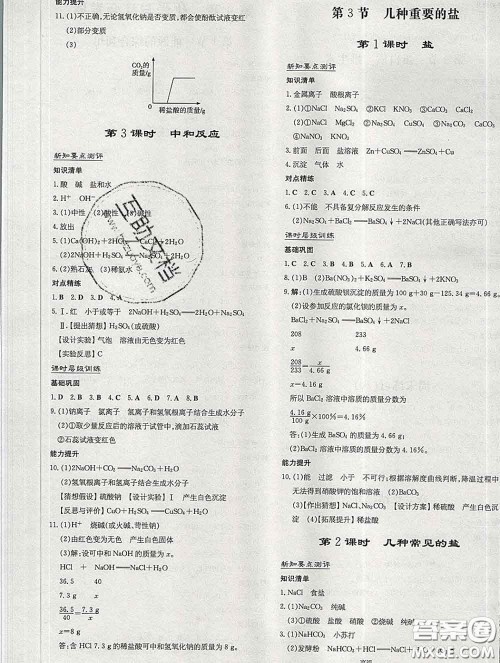 能力提升
11. (1)不正确,无论氢氧化钠是否变质,都会使酚酞试液变红
(2)部分变质
(3)
CO₂的
质量/g
稀盐酸的质量/g
第3课时 中和反应
新知要点测评
知识清单
1. 酸 碱 盐和水
2. H⁺ OH⁻
3. (1)中性 (2)酸性
4. 放出
(2)熟石灰 (3)稀氨水
对点精练
1. B 2. D 3. D 4. A
5. Ⅰ. 红 小于或等于 2NaOH+H₂SO₄══Na₂SO₄+2H₂O
Ⅱ.【提出猜想】H₂SO₄(或硫酸)
【设计实验】气泡 溶液由无色变为红色
【实验反思】C
课时层级训练
基础巩固
9. (1)钠离子 氯离子 氢离子和氢氧根离子结合生成水分子
(2)①取少量反应后的溶液于试管中,滴加石蕊试液
②石蕊试液变红色
能力提升
10. (1)2NaOH+CO₂══Na₂CO₃+H₂O
(2)氢氧根离子和氢离子结合生成水分子
【猜想假设】硫酸钠 【设计实验】Ⅰ 产生白色沉淀
【反思与评价】CuO+H₂SO₄══CuSO₄+H₂O
11. (1)H⁺ 烧碱(或火碱、苛性钠)
(2)由红色变为无色 由无色变为红色
(3)解:设可中和 NaOH 的质量为 x。
HCl+NaOH══NaCl+H₂O
36.5 40
7.3 g x
36.5/40=7.3 g/x
x=8 g
答:含 HCl 7.3 g 的稀盐酸可中和氢氧化钠的质量为 8 g。
第3节 几种重要的盐
第1课时 盐
新知要点测评
知识清单
1. 金属离子 酸根离子
2. (1)NaCl Na₂SO₄ ②KCl KNO₃ ③CaCO₃ CaCl₂
(2)①NaCl MgCl₂ ②Na₂SO₄ CuSO₄ ③Na₂CO₃ CaCO₃
④NaNO₃ KNO₃
3. 前面 后面 盐溶液 Zn+CuSO₄══ZnSO₄+Cu
4. 沉淀 气体 水
对点精练
1. C 2. C 3. A 4. C 5. A
6. (1)不能 不具备复分解反应发生的条件
(2)Na₂SO₄+BaCl₂══BaSO₄↓+2NaCl(其他正确写法亦可)
课时层级训练
基础巩固
8. (1)B (2)Ba(NO₃)₂+K₂SO₄══BaSO₄↓+2KNO₃
9. 解:(1)生成硫酸钡沉淀的质量为 100 g+30 g−125.34 g=4.66 g。
(2)设参加反应的氯化钡的质量为 x。
BaCl₂+Na₂SO₄══BaSO₄↓+2NaCl
208 233
x 4.66 g
208/233=x/4.66 g
x=4.16 g
所以 BaCl₂ 溶液中溶质的质量分数为
4.16 g/100 g×100%=4.16%
答:(1)生成 BaSO₄ 的质量为 4.66 g。
(2)BaCl₂ 溶液中溶质的质量分数为 4.16%。
能力提升
10. (1)能 过滤 小于 不可行;根据溶解度曲线判断,降温过程中
无法得到硝酸钾的饱和溶液 (2)BaCO₃
(3)【作出猜想】NaCl 【设计方案】稀硫酸 产生白色沉淀
(4)【拓展提升】稀盐酸
第2课时 几种常见的盐
新知要点测评
知识清单
1. NaCl 食盐
2. (1)Na₂CO₃ 纯碱
(2)发酵粉 NaHCO₃ 小苏打
互助文档
答案圈
MXQE.COM